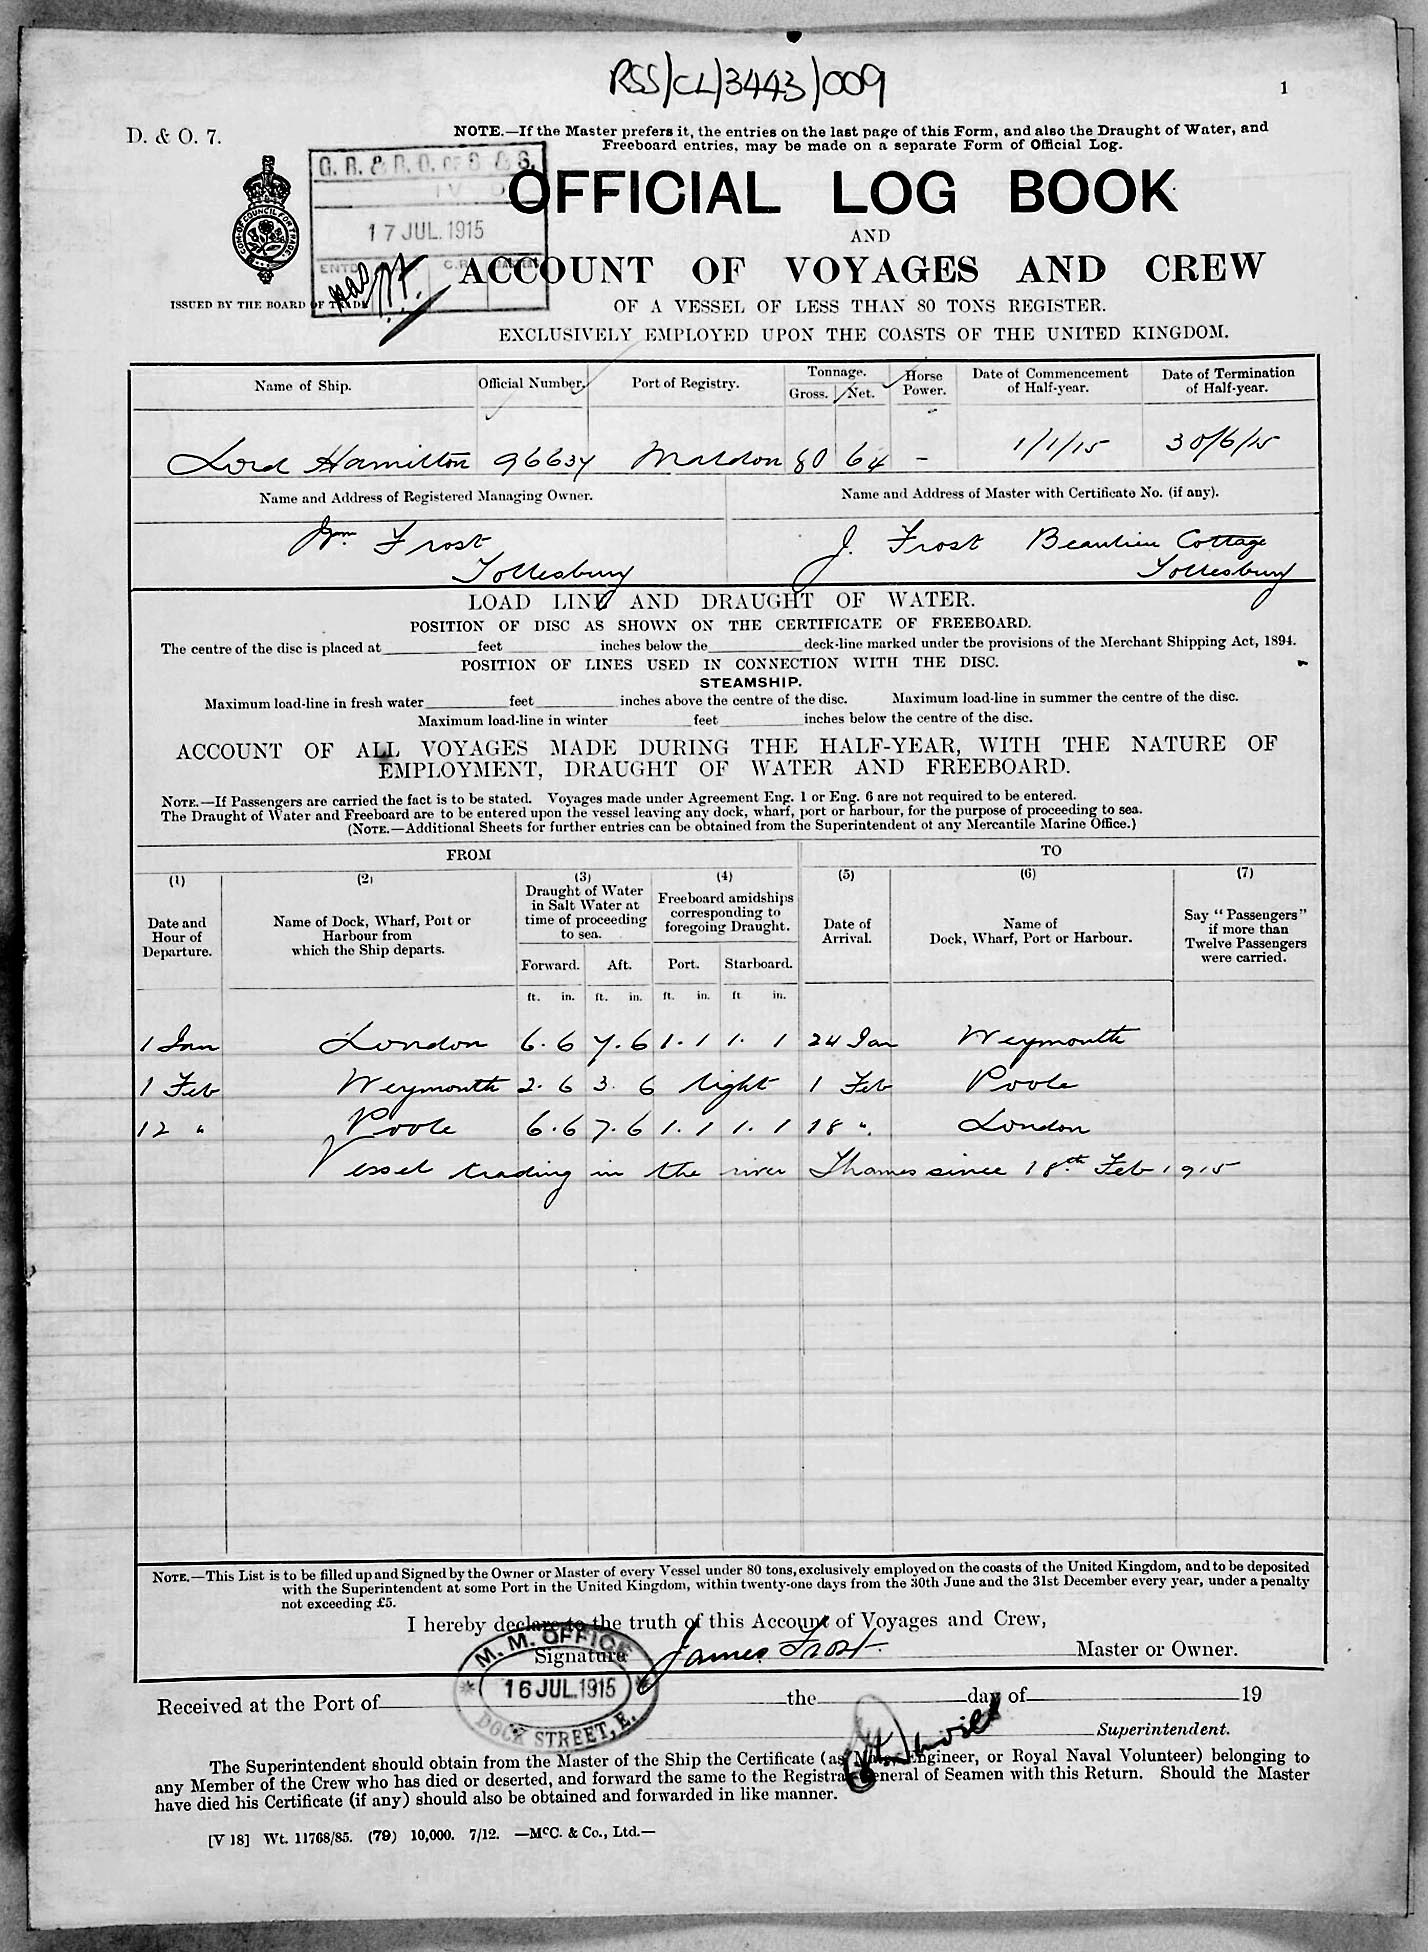 RSS/CL/3443/009
1
D. & O. 7.
NOTE.—If the Master prefers it, the entries on the last page of this Form, and also the Draught of Water, and
Freeboard entries, may be made on a separate Form of Official Log.
17 JUL. 1915
OFFICIAL LOG BOOK
AND
ACCOUNT OF VOYAGES AND CREW
ISSUED BY THE BOARD OF TRADE
OF A VESSEL OF LESS THAN 80 TONS REGISTER.
EXCLUSIVELY EMPLOYED UPON THE COASTS OF THE UNITED KINGDOM.
Name of Ship. Official Number. Port of Registry. Tonnage. Gross. Net. Horse Power. Date of Commencement of Half-year. Date of Termination of Half-year.
Lord Hamilton 96637 Maldon 80 64 - 1/1/15 30/6/15
Name and Address of Registered Managing Owner. Name and Address of Master with Certificate No. (if any).
Wm. Frost J. Frost Beaulieu Cottage
Tollesbury Tollesbury
LOAD LINE AND DRAUGHT OF WATER.
POSITION OF DISC AS SHOWN ON THE CERTIFICATE OF FREEBOARD.
The centre of the disc is placed at feet inches below the deck-line marked under the provisions of the Merchant Shipping Act, 1894.
POSITION OF LINES USED IN CONNECTION WITH THE DISC.
STEAMSHIP.
Maximum load-line in fresh water feet inches above the centre of the disc. Maximum load-line in summer the centre of the disc.
Maximum load-line in winter feet inches below the centre of the disc.
ACCOUNT OF ALL VOYAGES MADE DURING THE HALF-YEAR, WITH THE NATURE OF
EMPLOYMENT, DRAUGHT OF WATER AND FREEBOARD.
NOTE.—If Passengers are carried the fact is to be stated. Voyages made under Agreement Eng. 1 or Eng. 6 are not required to be entered.
The Draught of Water and Freeboard are to be entered upon the vessel leaving any dock, wharf, port or harbour, for the purpose of proceeding to sea.
(NOTE.—Additional Sheets for further entries can be obtained from the Superintendent of any Mercantile Marine Office.)
FROM TO
(1) (2) (3) (4) (5) (6) (7)
Date and Hour of Departure. Name of Dock, Wharf, Port or Harbour from which the Ship departs. Draught of Water in Salt Water at time of proceeding to sea. Freeboard amidships corresponding to foregoing Draught. Date of Arrival. Name of Dock, Wharf, Port or Harbour. Say "Passengers" if more than Twelve Passengers were carried.
Forward. Aft. Port. Starboard.
ft. in. ft. in. ft. in. ft. in.
1 Jan London 6.6 7.6 1.1 1.1 24 Jan Weymouth
1 Feb Weymouth 2.6 3.6 light 1 Feb Poole
12 " Poole 6.6 7.6 1.1 1.1 18 " London
Vessel trading in the river Thames since 18th Feb 1915
NOTE.—This List is to be filled up and Signed by the Owner or Master of every Vessel under 80 tons, exclusively employed on the coasts of the United Kingdom, and to be deposited
with the Superintendent at some Port in the United Kingdom, within twenty-one days from the 30th June and the 31st December every year, under a penalty
not exceeding £5.
I hereby declare to the truth of this Account of Voyages and Crew,
Signature James Frost Master or Owner.
M. M. OFFICE
16 JUL. 1915
DOCK STREET, E.
Received at the Port of the day of 19
Superintendent.
The Superintendent should obtain from the Master of the Ship the Certificate (as Mate, Engineer, or Royal Naval Volunteer) belonging to
any Member of the Crew who has died or deserted, and forward the same to the Registrar General of Seamen with this Return. Should the Master
have died his Certificate (if any) should also be obtained and forwarded in like manner.
[V 18] Wt. 11768/85. (79) 10,000. 7/12. —McC. & Co., Ltd.—